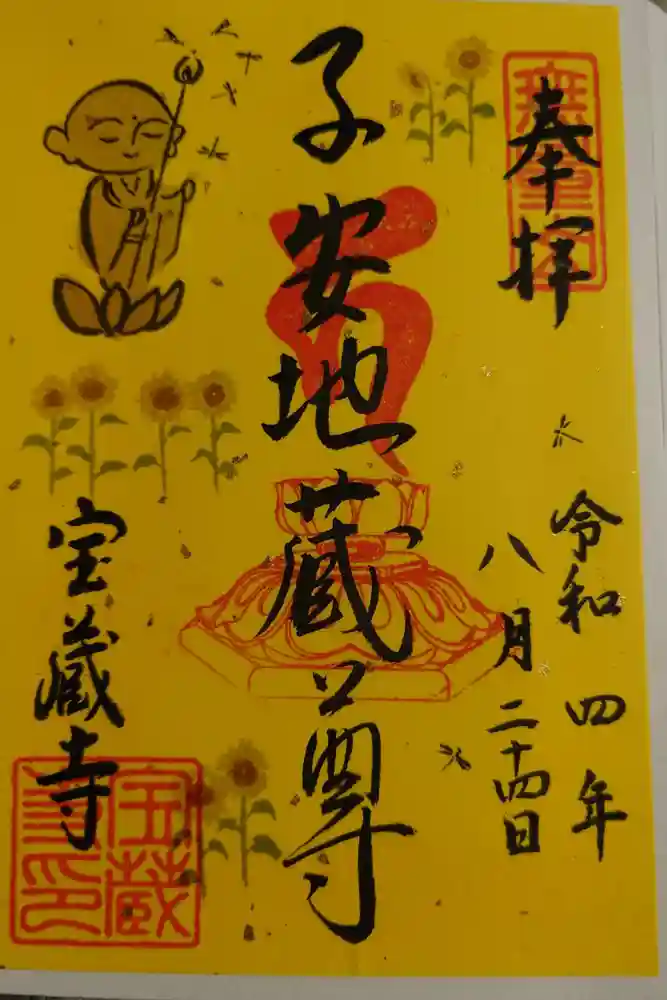 奉拝
令和四年
八月二十四日
子安地蔵尊
宝蔵寺
宝蔵
寺印